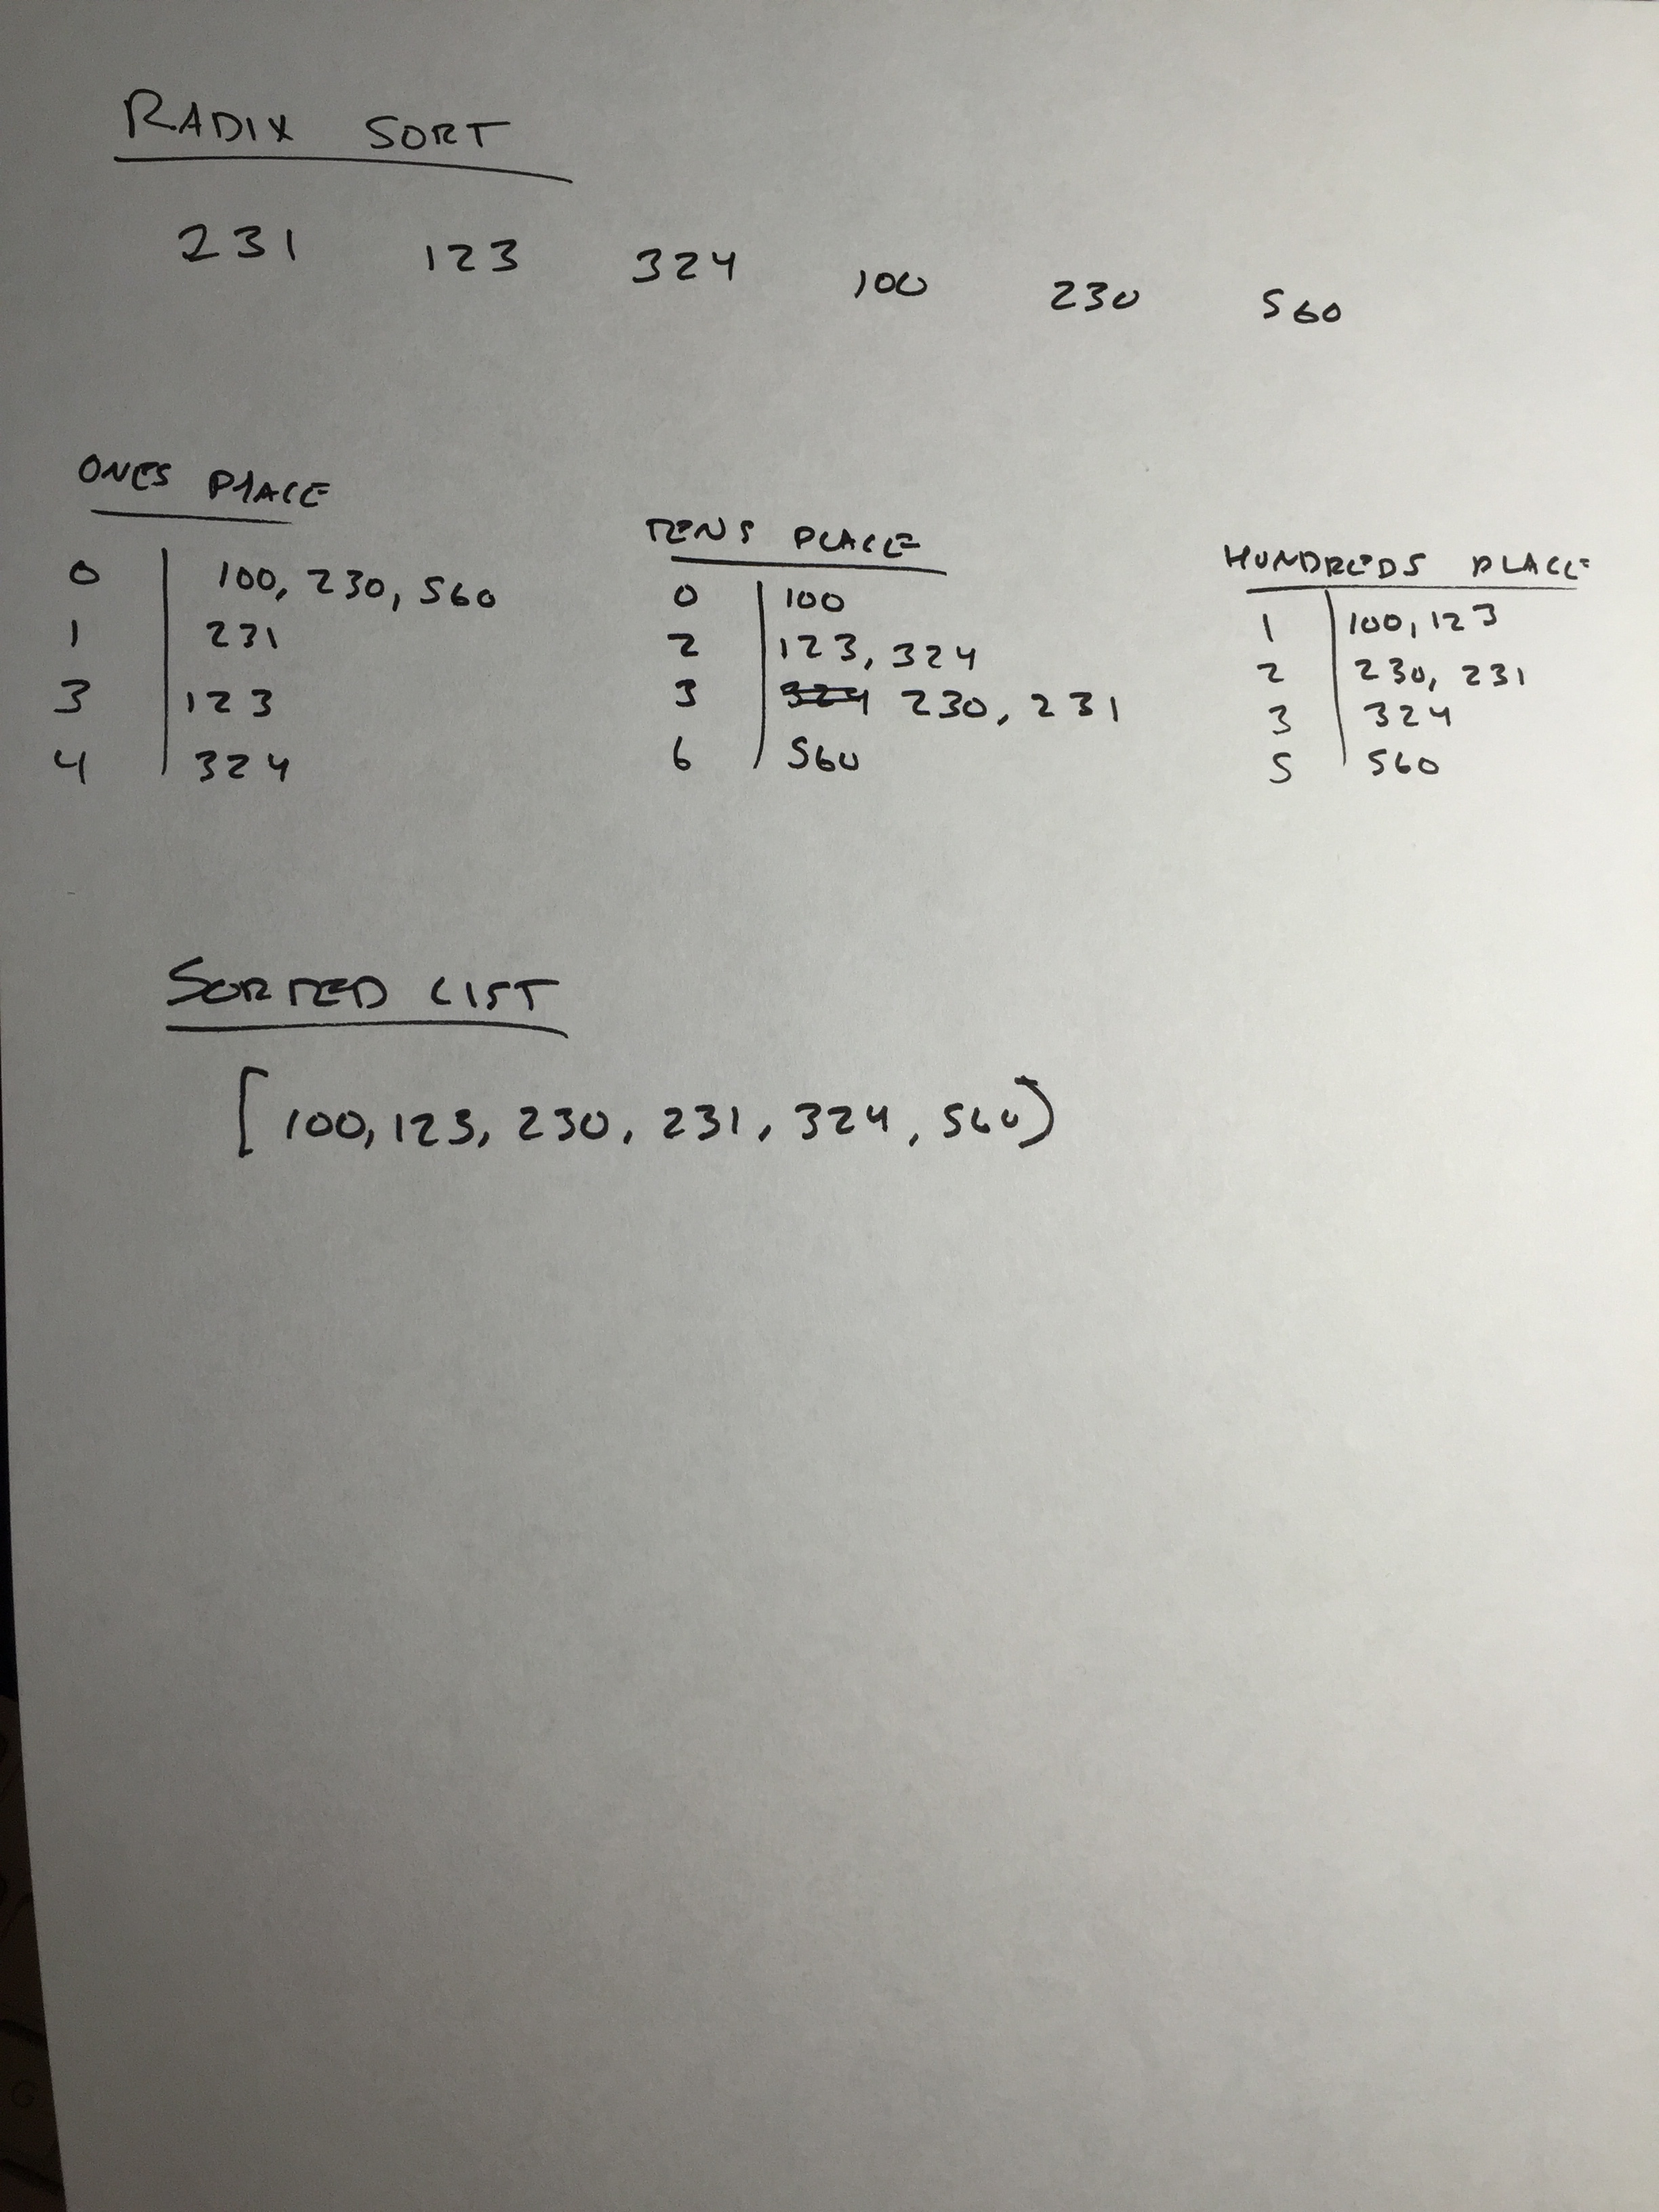 RADIX SORT
231 123 324 100 230 560
ONES PLACE
0 100, 230, 560
1 231
3 123
4 324
TENS PLACE
0 100
2 123, 324
3 324 230, 231
6 560
HUNDREDS PLACE
1 100, 123
2 230, 231
3 324
5 560
SORTED LIST
[100, 123, 230, 231, 324, 560)
G